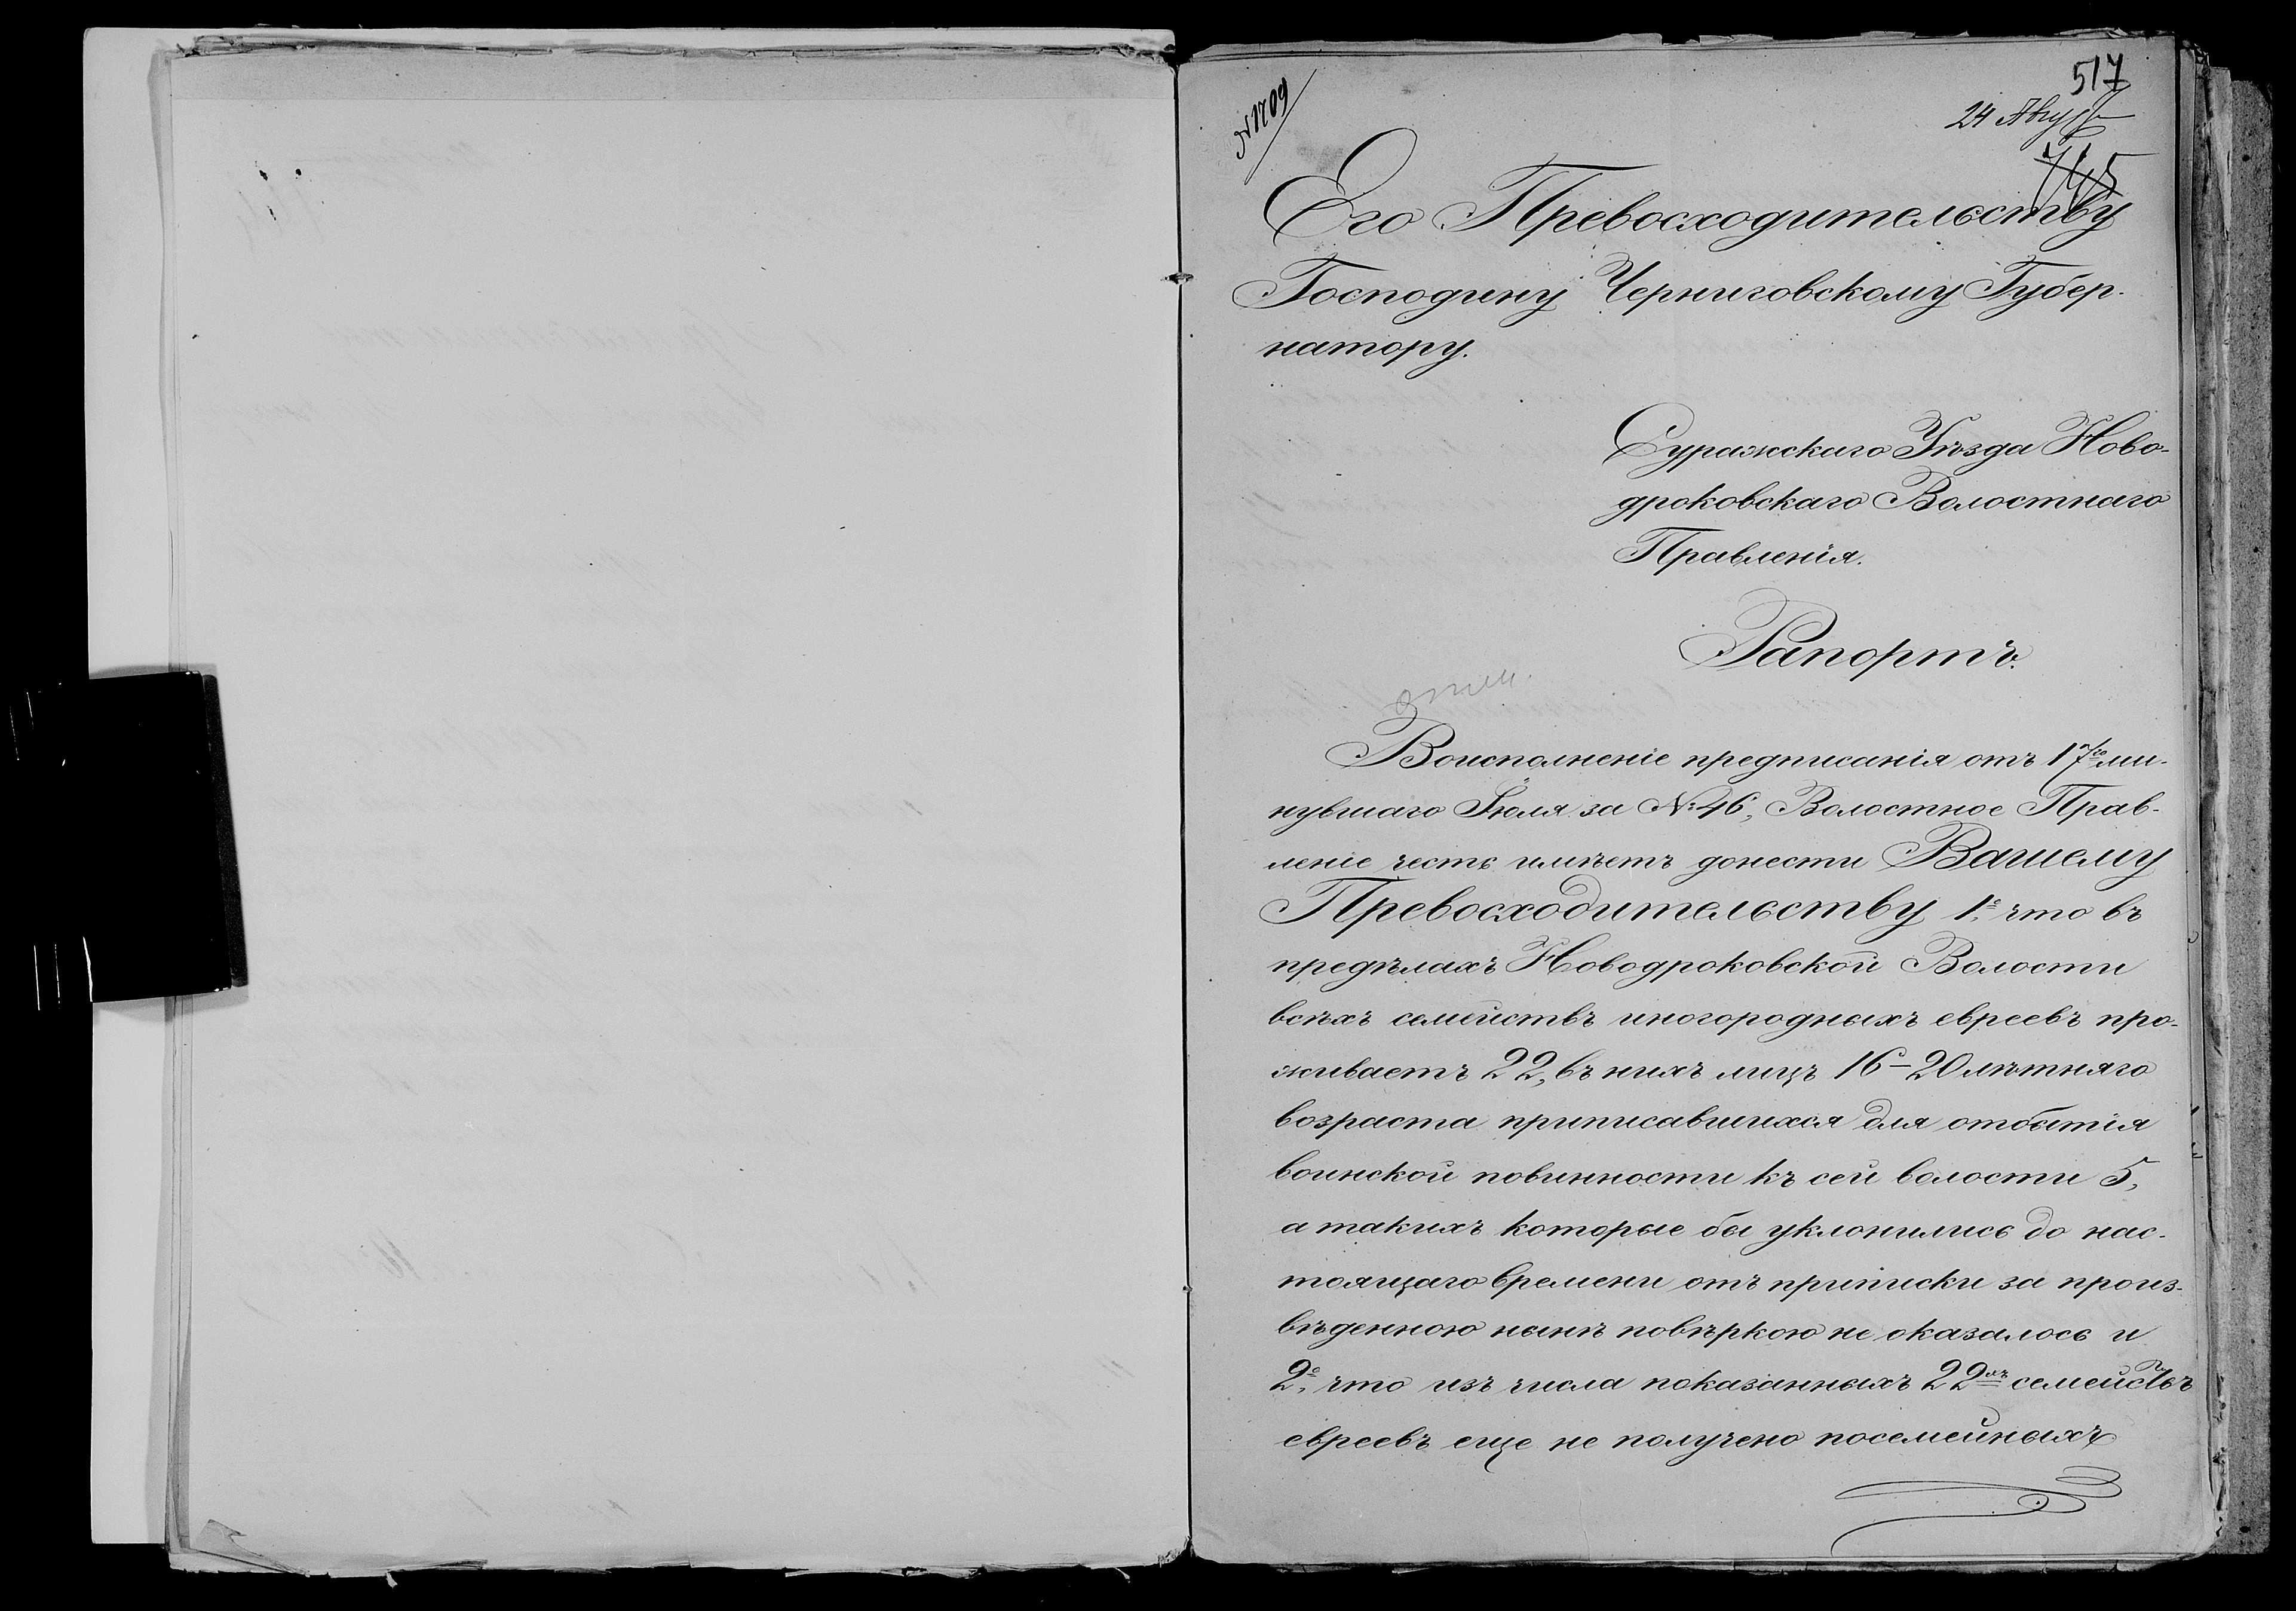 517
№ 1709
24 Авгус
745
Его Превосходительству
Господину Черниговскому Губер-
натору.
Суражскаго Уѣзда Ново-
дроковскаго Волостнаго
Правленія.
Рапортъ.
Воисполненіе предписанія отъ 17го ми-
нувшаго Іюля за № 46, Волостное Прав-
леніе честь имѣетъ донести Вашему
Превосходительству 1е, что въ
предѣлахъ Новодроковской Волости
всѣхъ семействъ иногородныхъ евреевъ про-
живаетъ 22, въ нихъ лицъ 16-20 лѣтняго
возраста приписавшихся для отбытія
воинской повинности къ сей волости 5,
а такихъ которые бы уклонились до нас-
тоящаго времени отъ приписки за произ-
вѣденною нынѣ повѣркою не оказалось и
2е, что изъ числа показанныхъ 22хъ семействъ
евреевъ еще не получено посемейныхъ